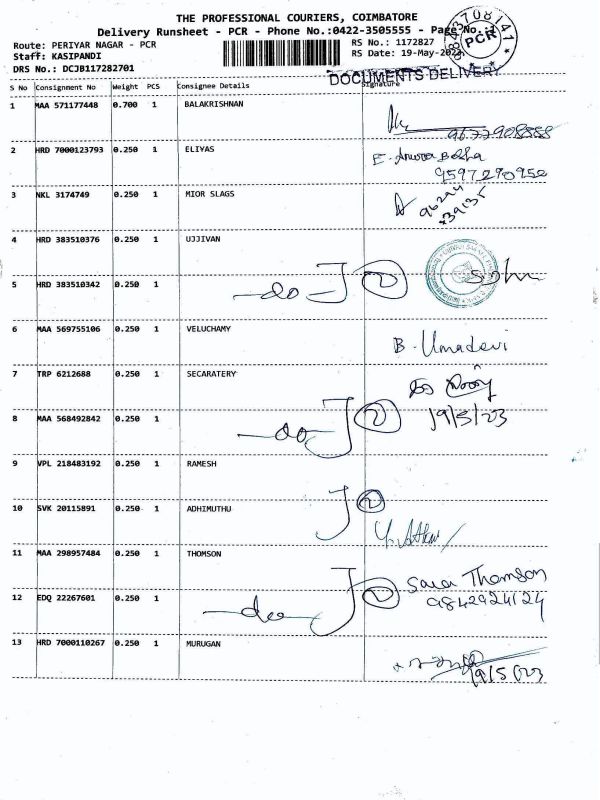 THE PROFESSIONAL COURIERS, COIMBATORE
Delivery Runsheet - PCR - Phone No.:0422-3505555 - Page No.:1
Route: PERIYAR NAGAR - PCR
RS No.: 1172827
Staff: KASIPANDI
RS Date: 19-May-2023
DRS No.: DCJB117282701
PCR
DOCUMENTS DELIVERY
S No Consignment No Weight PCS Consignee Details Signature
1 MAA 571177448 0.700 1 BALAKRISHNAN
9677908558
2 HRD 7000123793 0.250 1 ELIYAS
9597290950
3 NKL 3174749 0.250 1 MIOR SLAGS
4 HRD 383510376 0.250 1 UJJIVAN
5 HRD 383510342 0.250 1
-do- 2
6 MAA 569755106 0.250 1 VELUCHAMY
B. Umadevi
7 TRP 6212688 0.250 1 SECARATERY
19/5/23
8 MAA 568492842 0.250 1
-do- 2
9 VPL 218483192 0.250 1 RAMESH
2
10 SVK 20115891 0.250 1 ADHIMUTHU
11 MAA 298957484 0.250 1 THOMSON
Sara Thomson
9842924124
12 EDQ 22267601 0.250 1
-do- 2
13 HRD 7000110267 0.250 1 MURUGAN
19/5/23